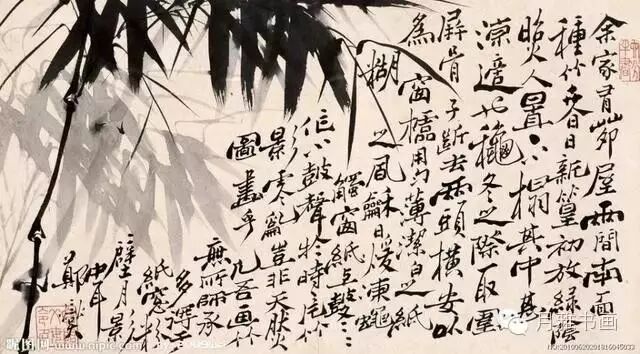 余家有茆屋兩間南面
種竹夏日新篁初放綠陰
照人置小榻其中甚
涼適也龝冬之際取圍
屏骨子斷去兩頭橫安以
為窗櫺用勻薄潔白之紙
糊之風龢日煖凍蠅
觸窗紙上鼓鼓
作小鼓聲於時一片竹
影零亂豈非天然
圖畫乎凡吾画竹
無所師承
多得
紙窓
壁月影
中耳
鄭燮
昵图网 www.nipic.com
月雅书画
NO:20100620201816045033